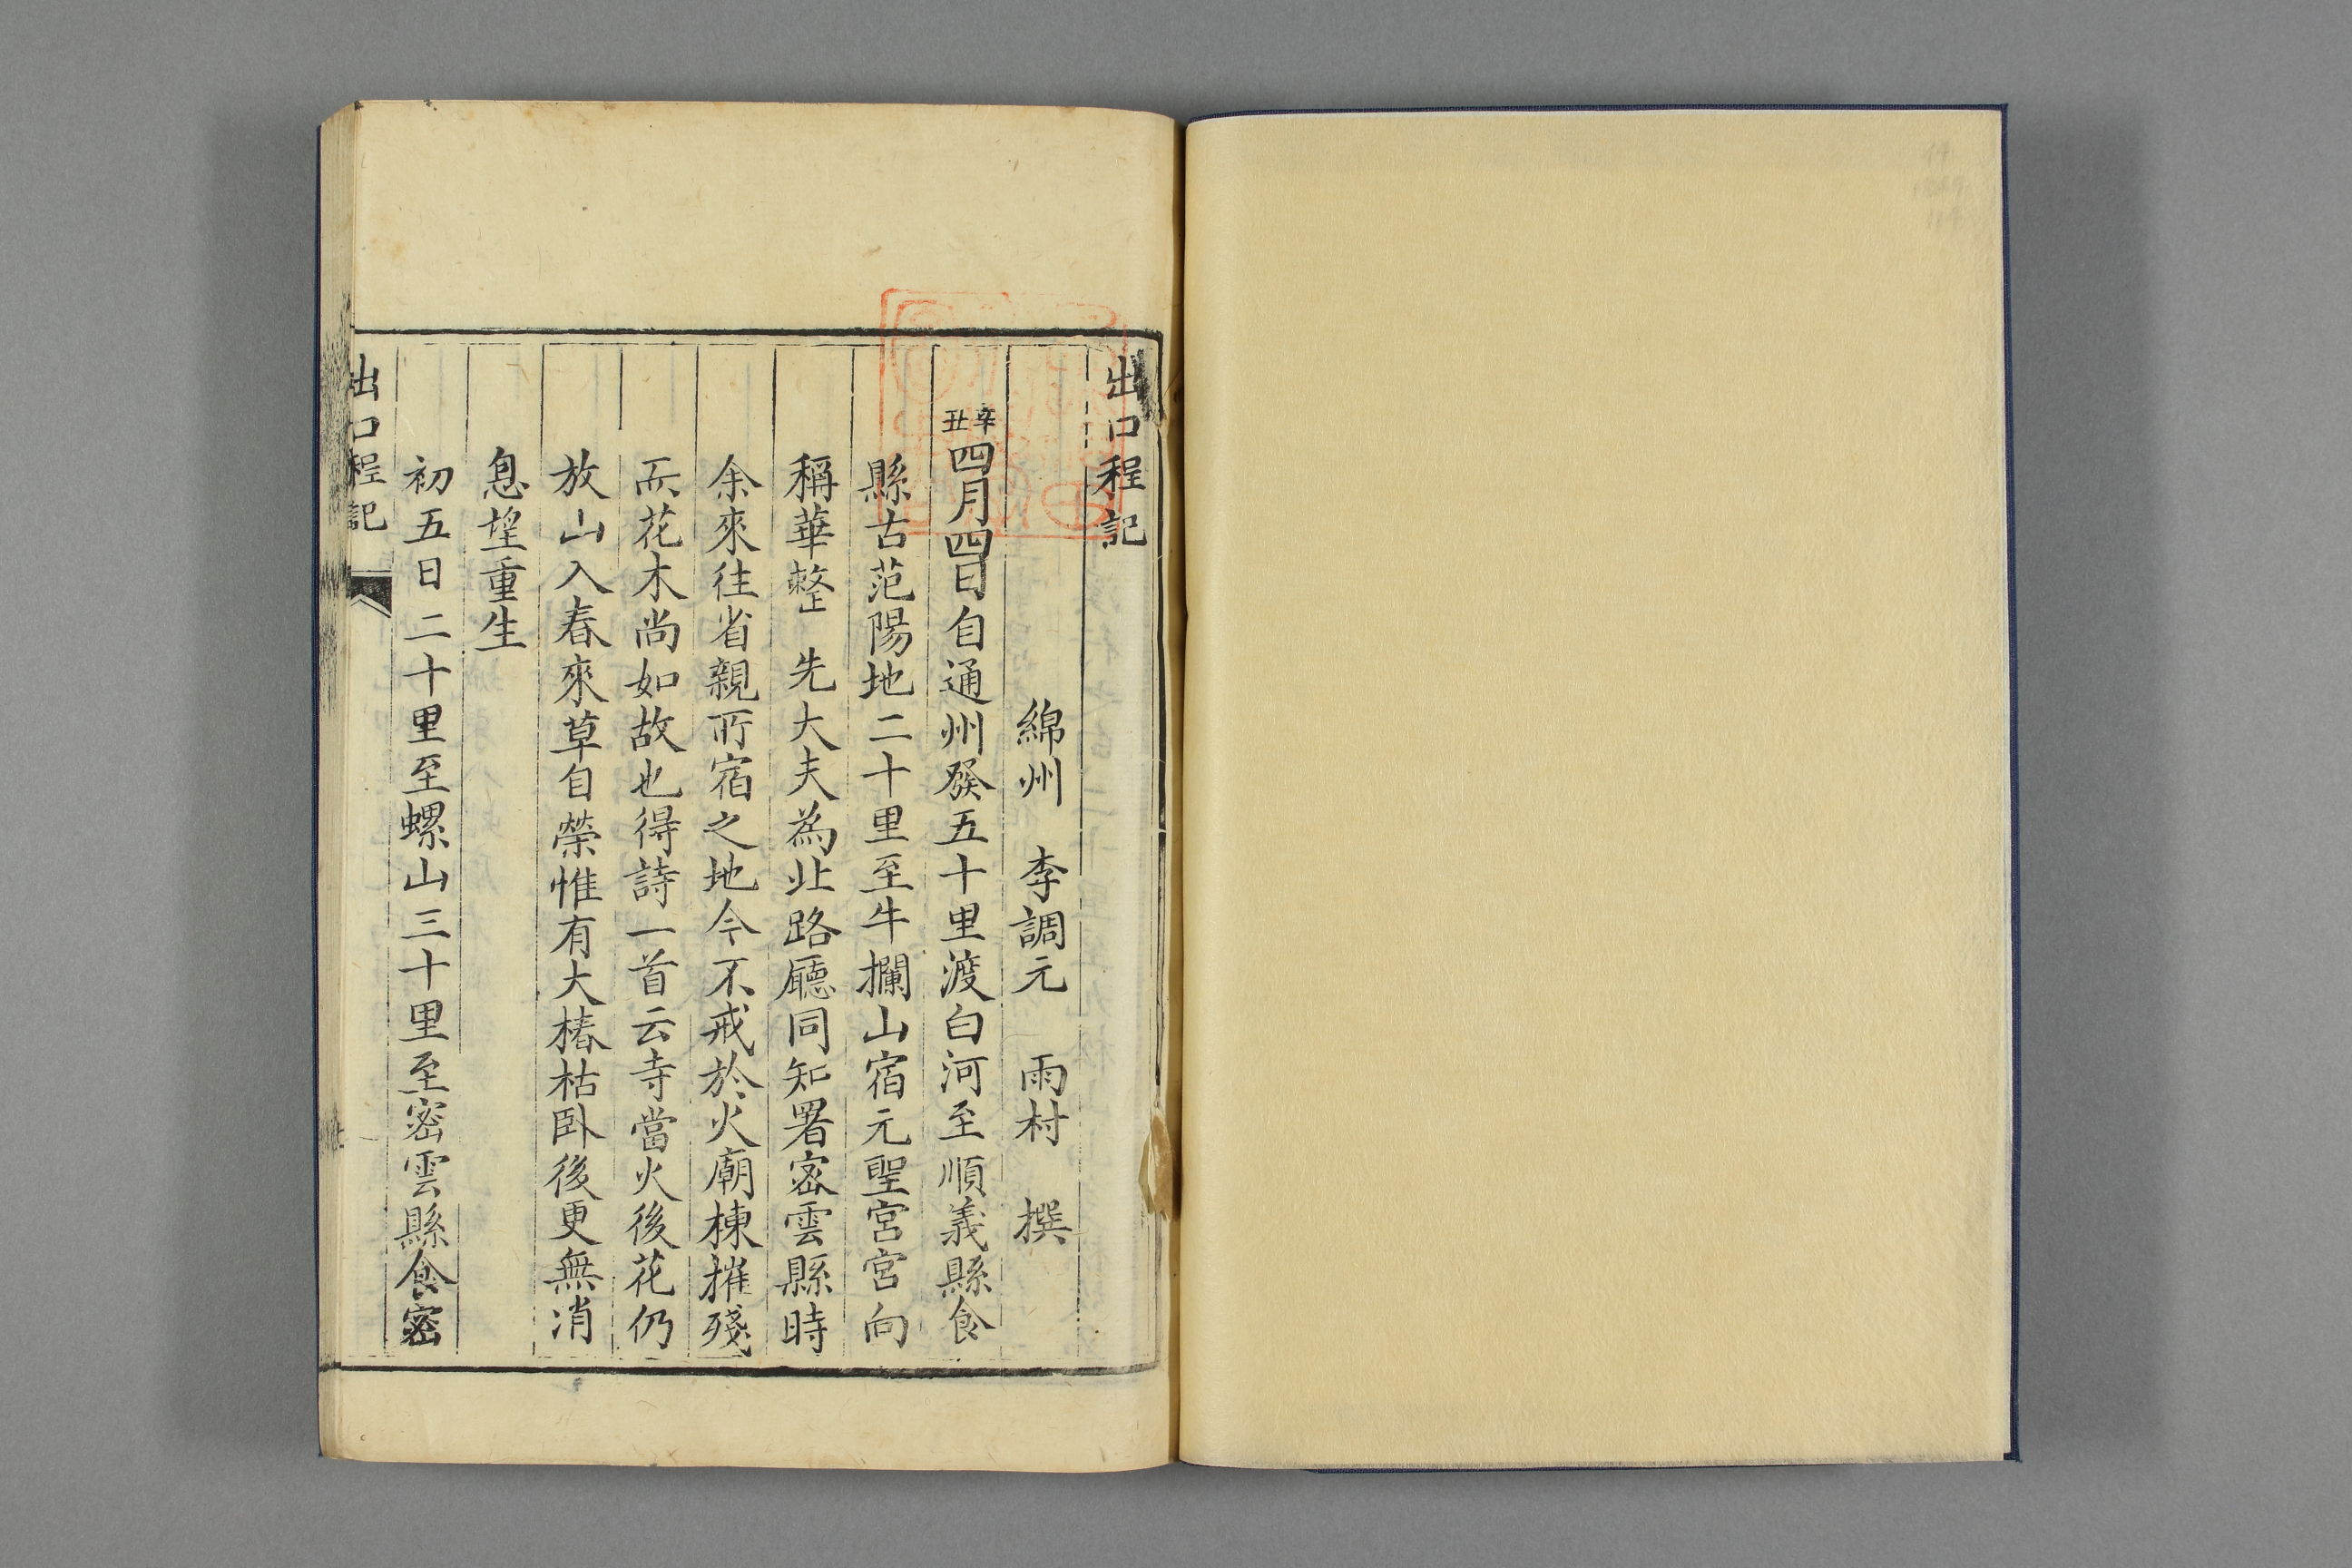 出口程記
綿州 李調元 雨村 撰
辛丑四月四日自通州發五十里渡白河至順義縣食
縣古范陽地二十里至牛欄山宿元聖宮宮向
稱華整 先大夫為北路廳同知署密雲縣時
余來往省親所宿之地今不戒於火廟棟摧殘
而花木尚如故也得詩一首云寺當火後花仍
放山入春來草自榮惟有大椿枯臥後更無消
息望重生
初五日二十里至螺山三十里至密雲縣食密
出口程記